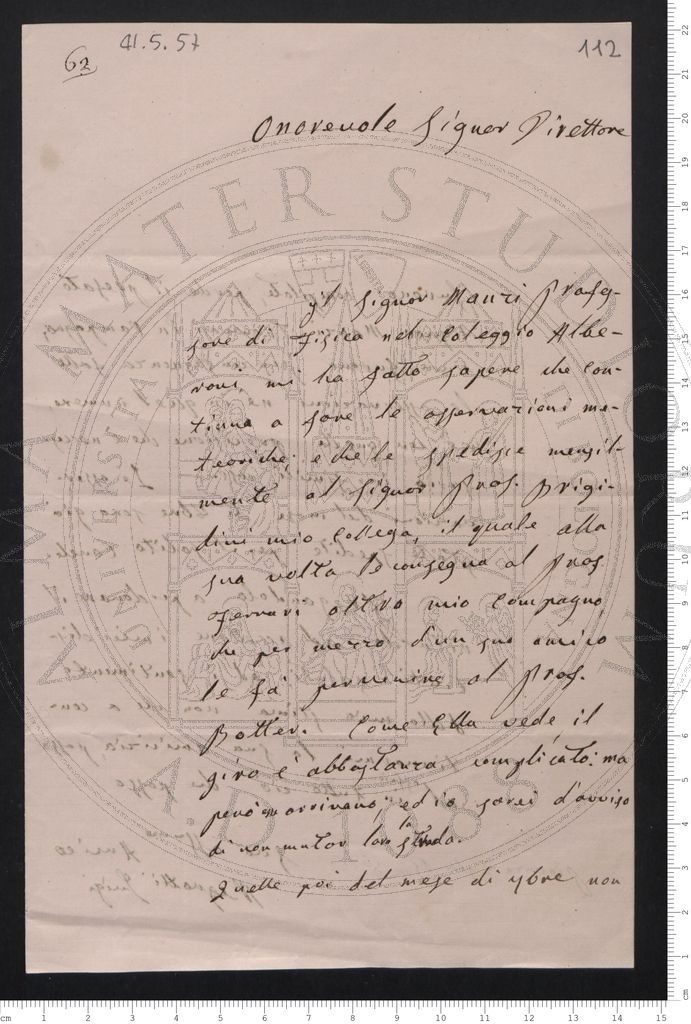 62
41.5.57
112
Onorevole Signor Direttore
Il Signor Manzi Profes-
sore di Fisica nel Coleggio Albe-
roni, mi ha fatto sapere che con-
tinua a fare le osservazioni me-
teoriche; e che le spedisce mensil-
mente al Signor Prof. Brigi-
dini mio Collega, il quale alla
sua volta le consegna al Prof.
Ferrari altro mio Compagno,
che per mezzo d'un suo amico
le fà pervenire al Prof.
Botter. Come Ella vede, il
giro è abbastanza complicato: ma
però arrivano; ed io sarei d'avviso
di non mutar loro la strada.
Quelle poi del mese di 9bre non
ALMA MATER STUDIORUM
A.D. 1088